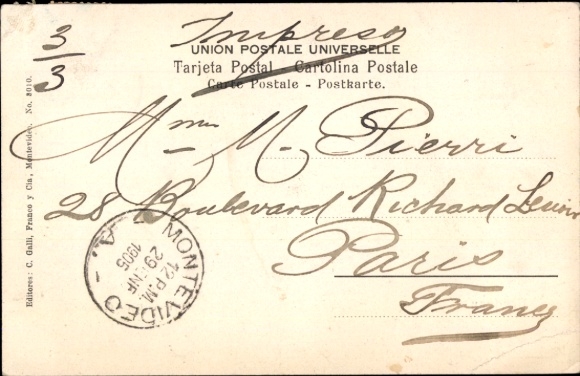 3/3
Impreso
UNION POSTALE UNIVERSELLE
Tarjeta Postal - Cartolina Postale
Carte Postale - Postkarte.
Mme M. Pierri
28 Boulevard Richard Lenoir
Paris
France
MONTEVIDEO
A
12 P.M.
29 ENE
1905
Editores: C. Galli, Franco y Cia, Montevideo. No. 3010.